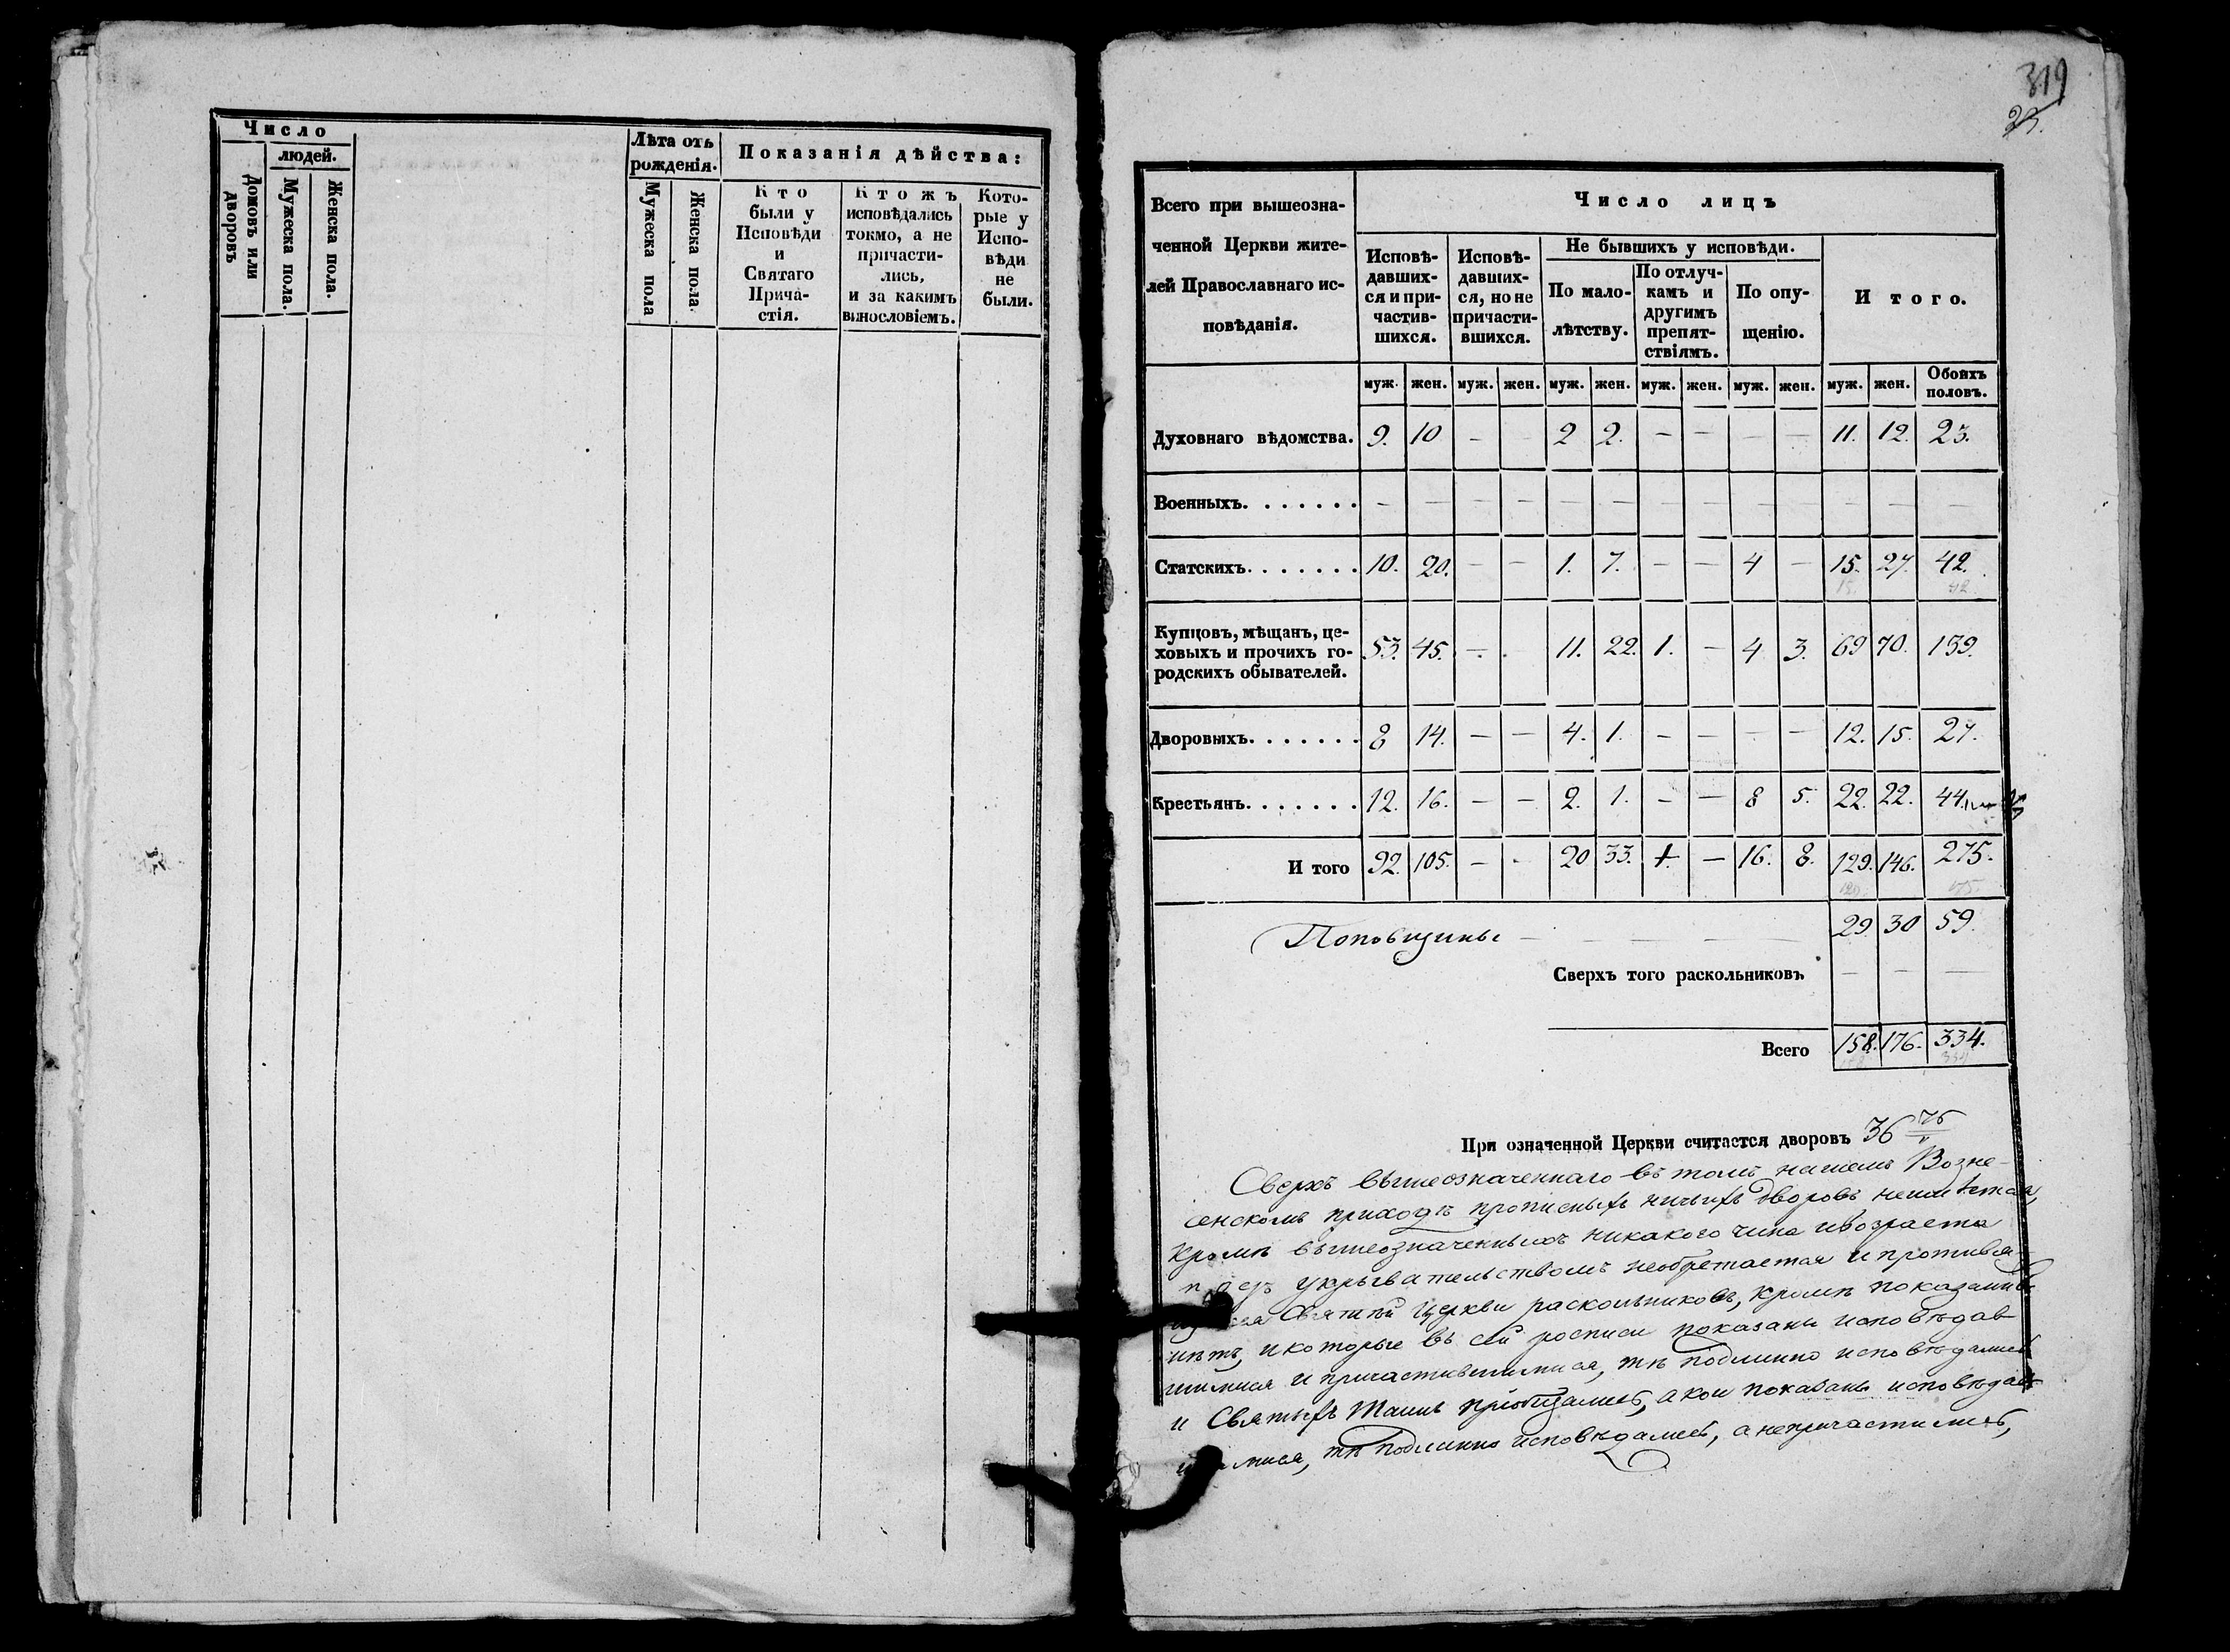 Число
людей.
Домовъ или дворовъ
Мужеска пола.
Женска пола.
Лѣта отъ
рожденія.
Мужеска пола
Женска пола
Показанія дѣйства:
Кто
были у
Исповѣди
и
Святаго
Прича-
стія.
Ктожъ
исповѣдались
токмо, а не
причасти-
лись,
и за какимъ
винословіемъ.
Кото-
рые у
Испо-
вѣди
не
были.
319
23.
Всего при вышеозна-
ченной Церкви жите-
лей Православнаго ис-
повѣданія.
Число лицъ
Исповѣ-
давших-
ся и при-
частив-
шихся.
Исповѣ-
давших-
ся, но не
причасти-
вшихся.
Не бывшихъ у исповѣди.
По мало-
лѣтству.
По отлуч-
камъ и
другимъ
препят-
ствіямъ.
По опу-
щенію.
Итого.
муж. жен. муж. жен. муж. жен. муж. жен. муж. жен. муж. жен. Обоихъ половъ.
Духовнаго вѣдомства. 9. 10 – – 2 2. – – – – 11. 12. 23.
Военныхъ. . . . . . . – – – – – – – – – – – – –
Статскихъ. . . . . . . 10. 20. – – 1. 7. – – 4 – 15. 27. 42.
15. 42
Купцовъ, мѣщанъ, це-
ховыхъ и прочихъ го-
родскихъ обывателей.
53. 45. – . 11. 22. 1. – 4 3. 69 70. 139.
Дворовыхъ. . . . . . . 8 14. – – 4. 1. – – – – 12. 15. 27.
Крестьянъ. . . . . . . 12. 16. – – 2. 1. – – 8 5. 22. 22. 44.
Итого 92. 105. – – 20 33. 1. – 16. 8. 129. 146. 275.
Поповщины – – – – 29. 30 59.
Сверхъ того раскольниковъ – – –
Всего 158. 176. 334.
334
При означенной Церкви считается дворовъ 36
Сверхъ вышеозначеннаго въ томъ нашемъ Возне-
сенскомъ приходѣ прописныхъ ничьихъ дворовъ неимѣется,
кромѣ вышеозначенныхъ никакого чина ивозраста
укрывательствомъ необретается и противя-
Святѣй Церкви раскольниковъ, кромѣ показанныхъ
нѣтъ, икоторые въ сей росписи показаны исповѣдав
шимися и причастившимися, тѣ подлинно исповѣдались
и Святыхъ Таинъ пріобщались, акои показаны исповѣдав
тѣ подлинно исповѣдались, а непричастились,